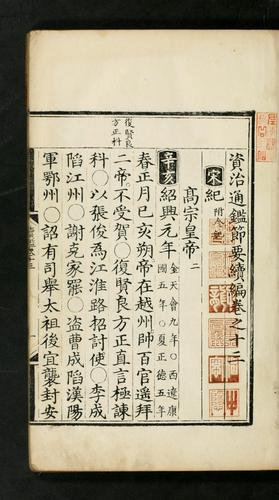 資治通鑑節要續編卷之十二
宋紀 附金
高宗皇帝 二
辛亥 紹興元年 金天會九年○西遼康國五年○夏正德五年
春正月已亥朔帝在越州帥百官遥拜
二帝不受賀○復賢良方正直言極諫
科○以張俊為江淮路招討使○李成
陷江州○謝克家罷○盗曹成陷漢陽
軍鄂州○詔有司舉太祖後宜襲封安
復賢良
方正科